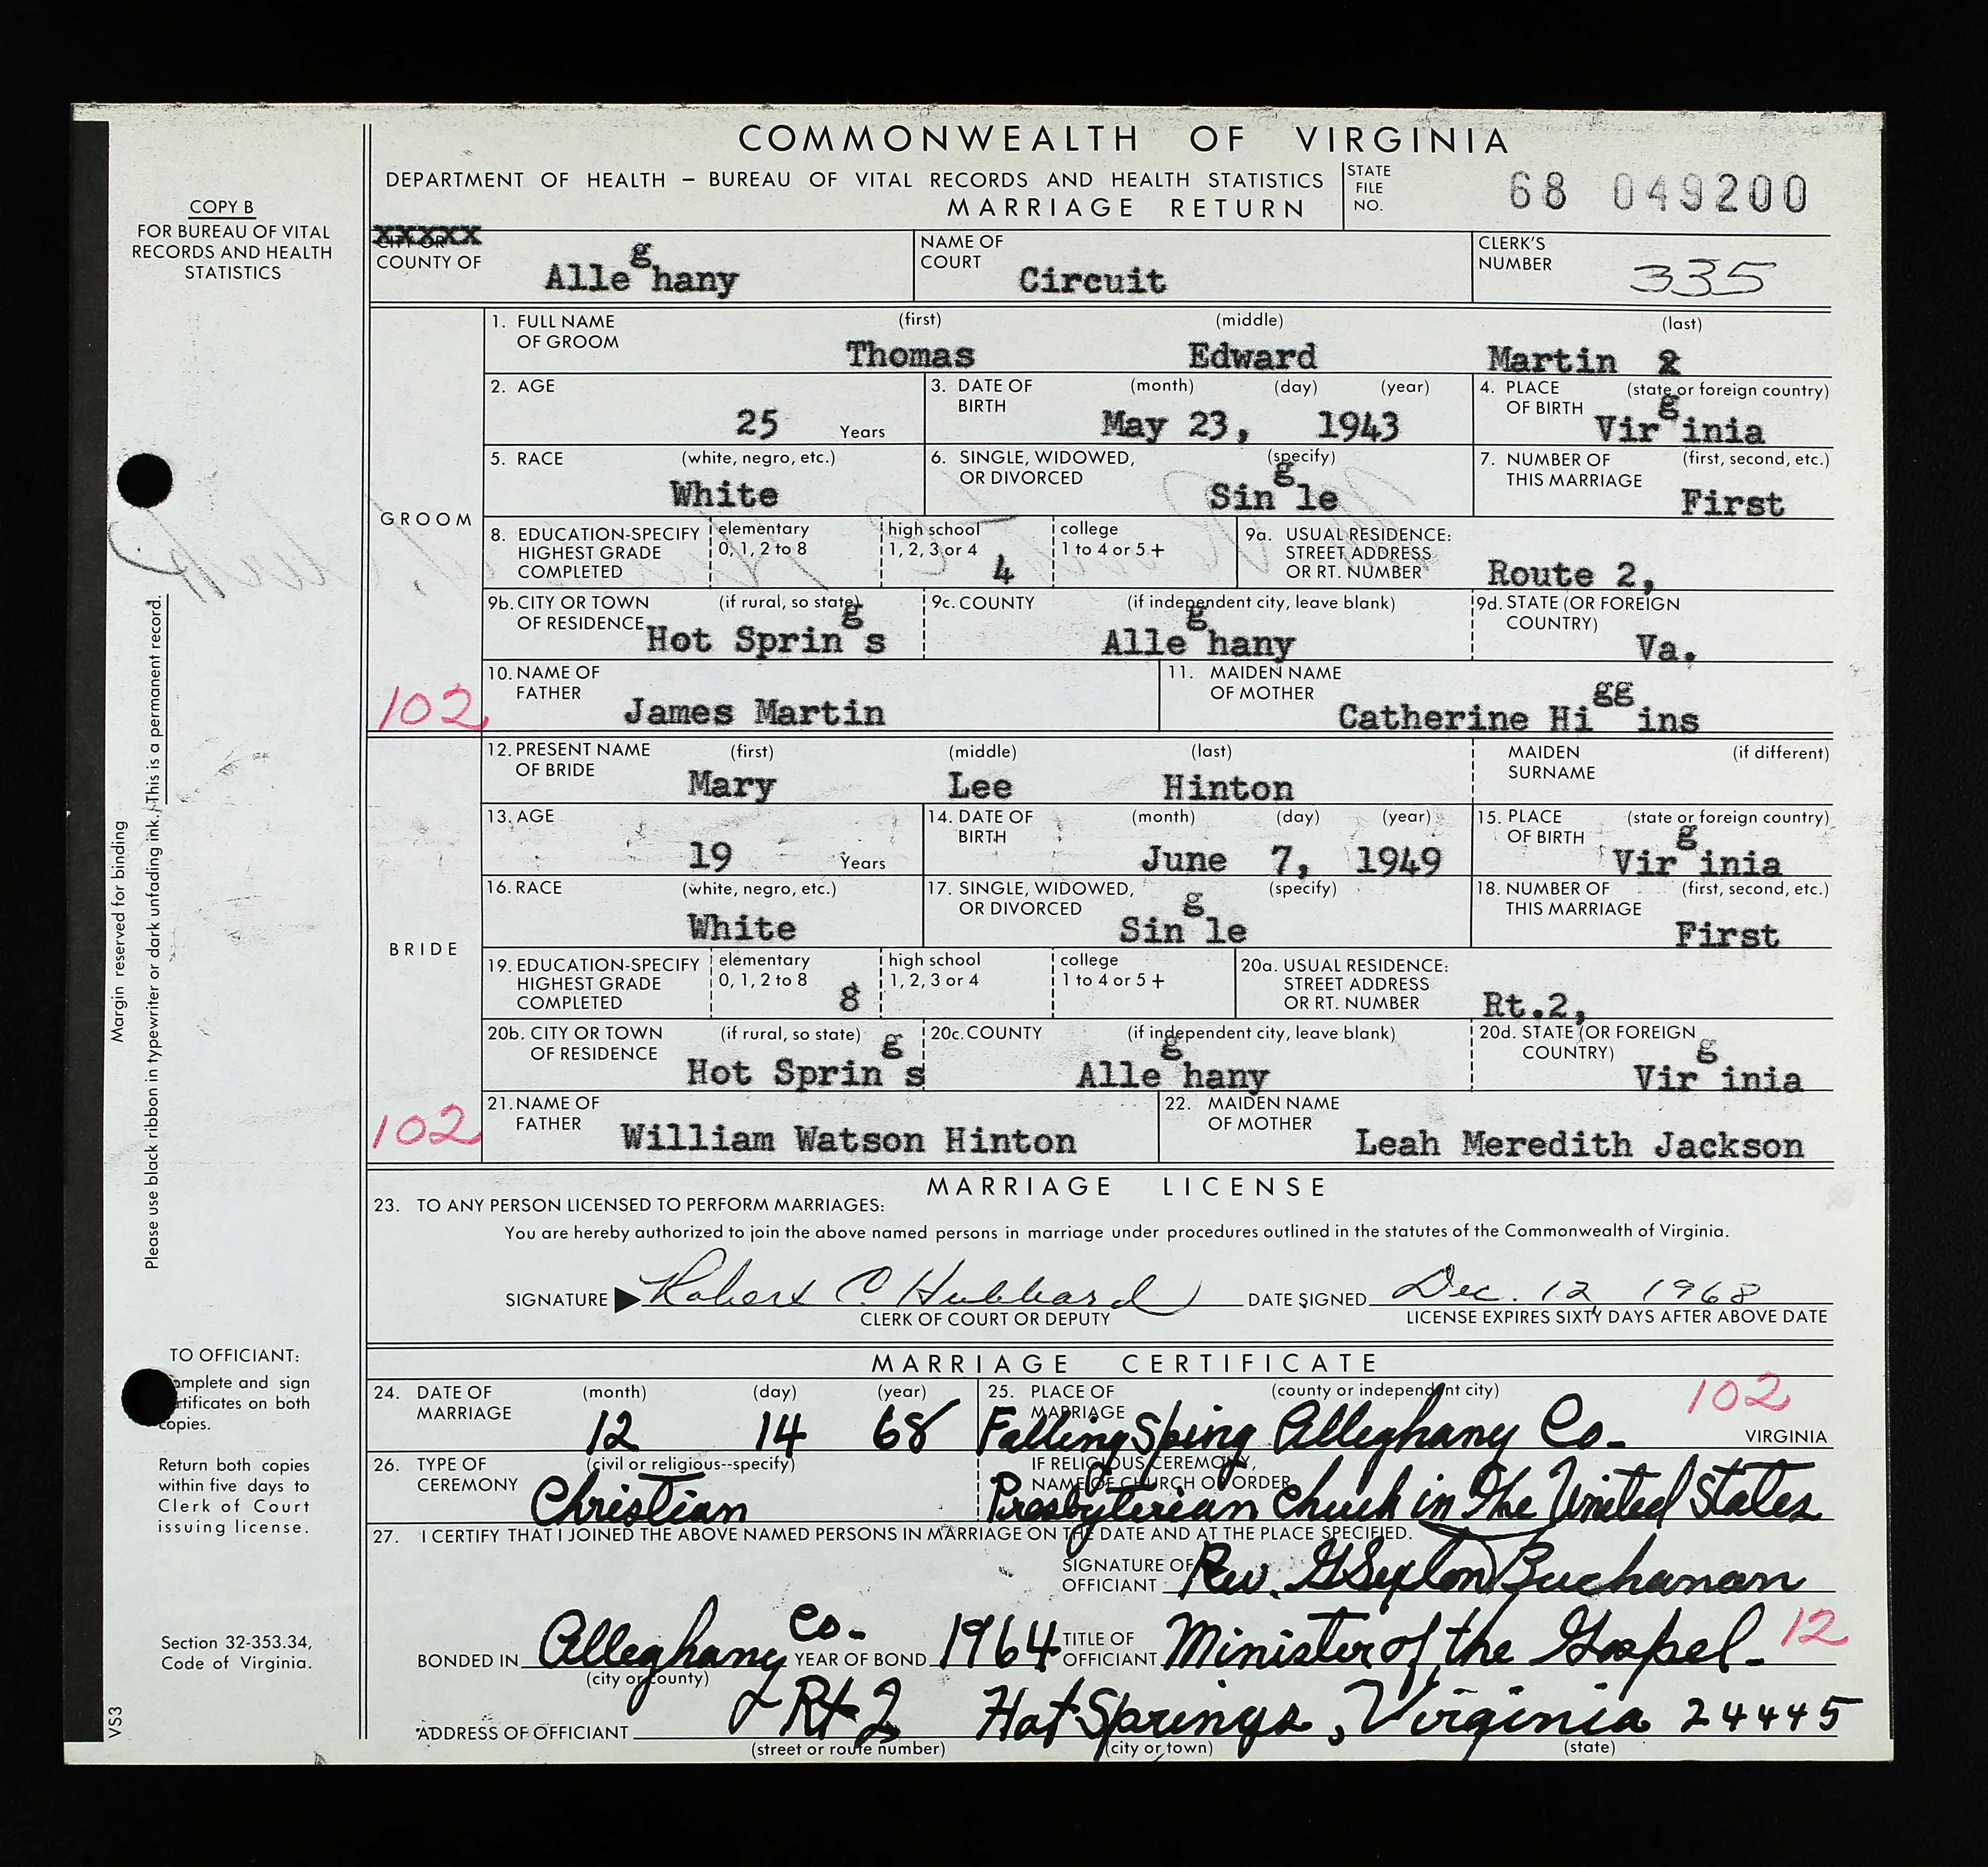 COMMONWEALTH OF VIRGINIA
DEPARTMENT OF HEALTH – BUREAU OF VITAL RECORDS AND HEALTH STATISTICS
MARRIAGE RETURN
STATE FILE NO. 68 049200
COPY B
FOR BUREAU OF VITAL
RECORDS AND HEALTH
STATISTICS
XXXXX
CITY OR
COUNTY OF Alleghany
NAME OF COURT Circuit
CLERK'S NUMBER 335
GROOM
1. FULL NAME OF GROOM (first) (middle) (last)
Thomas Edward Martin
2. AGE 25 Years
3. DATE OF BIRTH (month) (day) (year) May 23, 1943
4. PLACE OF BIRTH (state or foreign country) Virginia
5. RACE (white, negro, etc.) White
6. SINGLE, WIDOWED, OR DIVORCED (specify) Single
7. NUMBER OF THIS MARRIAGE (first, second, etc.) First
8. EDUCATION-SPECIFY HIGHEST GRADE COMPLETED
elementary 0, 1, 2 to 8
high school 1, 2, 3 or 4 4
college 1 to 4 or 5+
9a. USUAL RESIDENCE: STREET ADDRESS OR RT. NUMBER Route 2,
9b. CITY OR TOWN OF RESIDENCE (if rural, so state) Hot Springs
9c. COUNTY (if independent city, leave blank) Alleghany
9d. STATE (OR FOREIGN COUNTRY) Va.
10. NAME OF FATHER James Martin
11. MAIDEN NAME OF MOTHER Catherine Higgins
102
BRIDE
12. PRESENT NAME OF BRIDE (first) (middle) (last)
Mary Lee Hinton
MAIDEN SURNAME (if different)
13. AGE 19 Years
14. DATE OF BIRTH (month) (day) (year) June 7, 1949
15. PLACE OF BIRTH (state or foreign country) Virginia
16. RACE (white, negro, etc.) White
17. SINGLE, WIDOWED, OR DIVORCED (specify) Single
18. NUMBER OF THIS MARRIAGE (first, second, etc.) First
19. EDUCATION-SPECIFY HIGHEST GRADE COMPLETED
elementary 0, 1, 2 to 8 8
high school 1, 2, 3 or 4
college 1 to 4 or 5+
20a. USUAL RESIDENCE: STREET ADDRESS OR RT. NUMBER Rt.2,
20b. CITY OR TOWN OF RESIDENCE (if rural, so state) Hot Springs
20c. COUNTY (if independent city, leave blank) Alleghany
20d. STATE (OR FOREIGN COUNTRY) Virginia
21. NAME OF FATHER William Watson Hinton
22. MAIDEN NAME OF MOTHER Leah Meredith Jackson
102
MARRIAGE LICENSE
23. TO ANY PERSON LICENSED TO PERFORM MARRIAGES:
You are hereby authorized to join the above named persons in marriage under procedures outlined in the statutes of the Commonwealth of Virginia.
SIGNATURE Robert C. Hubbard DATE SIGNED Dec. 12, 1968
CLERK OF COURT OR DEPUTY
LICENSE EXPIRES SIXTY DAYS AFTER ABOVE DATE
MARRIAGE CERTIFICATE
24. DATE OF MARRIAGE (month) (day) (year) 12 14 68
25. PLACE OF MARRIAGE (county or independent city) Falling Sping Alleghany Co. 102 VIRGINIA
26. TYPE OF CEREMONY (civil or religious--specify) Christian
IF RELIGIOUS CEREMONY, NAME OF CHURCH OR ORDER Presbyterian Chuch in The United States
27. I CERTIFY THAT I JOINED THE ABOVE NAMED PERSONS IN MARRIAGE ON THE DATE AND AT THE PLACE SPECIFIED.
SIGNATURE OF OFFICIANT Rev. G Sexton Buchanan
BONDED IN Alleghany Co. (city or county) YEAR OF BOND 1964
TITLE OF OFFICIANT Minister of the Gospel 12
ADDRESS OF OFFICIANT Rt 2 Hot Springs, Virginia 24445
(street or route number) (city or town) (state)
Margin reserved for binding
Please use black ribbon in typewriter or dark unfading ink. This is a permanent record.
TO OFFICIANT:
omplete and sign
rtificates on both
copies.
Return both copies
within five days to
Clerk of Court
issuing license.
Section 32-353.34,
Code of Virginia.
VS3